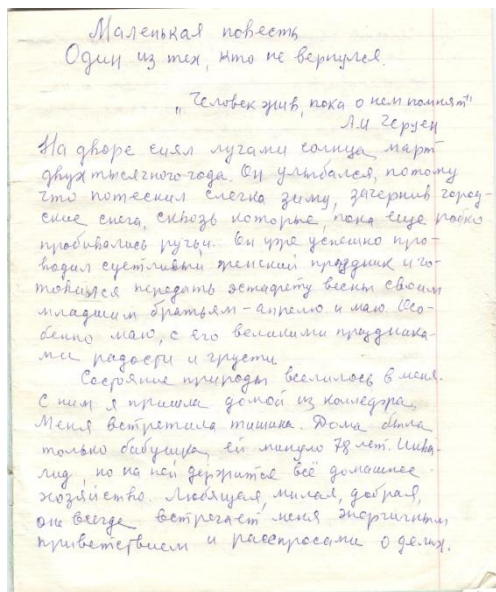 Маленькая повесть
Один из тех, кто не вернулся.
"Человек жив, пока о нем помнят"
А.И Герцен
На дворе сиял лучами солнца март
двухтысячного года. Он улыбался, потому
что потеснил слегка зиму, зачернив город-
ские снега, сквозь которые, пока еще робко
пробивались ручьи. Он уже успешно про-
водил суетливый женский праздник и го-
товился передать эстафету весны своим
младшим братьям - апрелю и маю. Осо-
бенно маю, с его великими праздника-
ми радости и грусти
Состояние природы вселилось в меня.
С ним я пришла домой из колледжа,
Меня встретила тишина. Дома была
только бабушка, ей минуло 78 лет. Инва-
лид, но на ней держится всё домашнее
хозяйство. Любящая, милая, добрая,
она всегда встречает меня энергичным
приветствием и расспросами о делах.